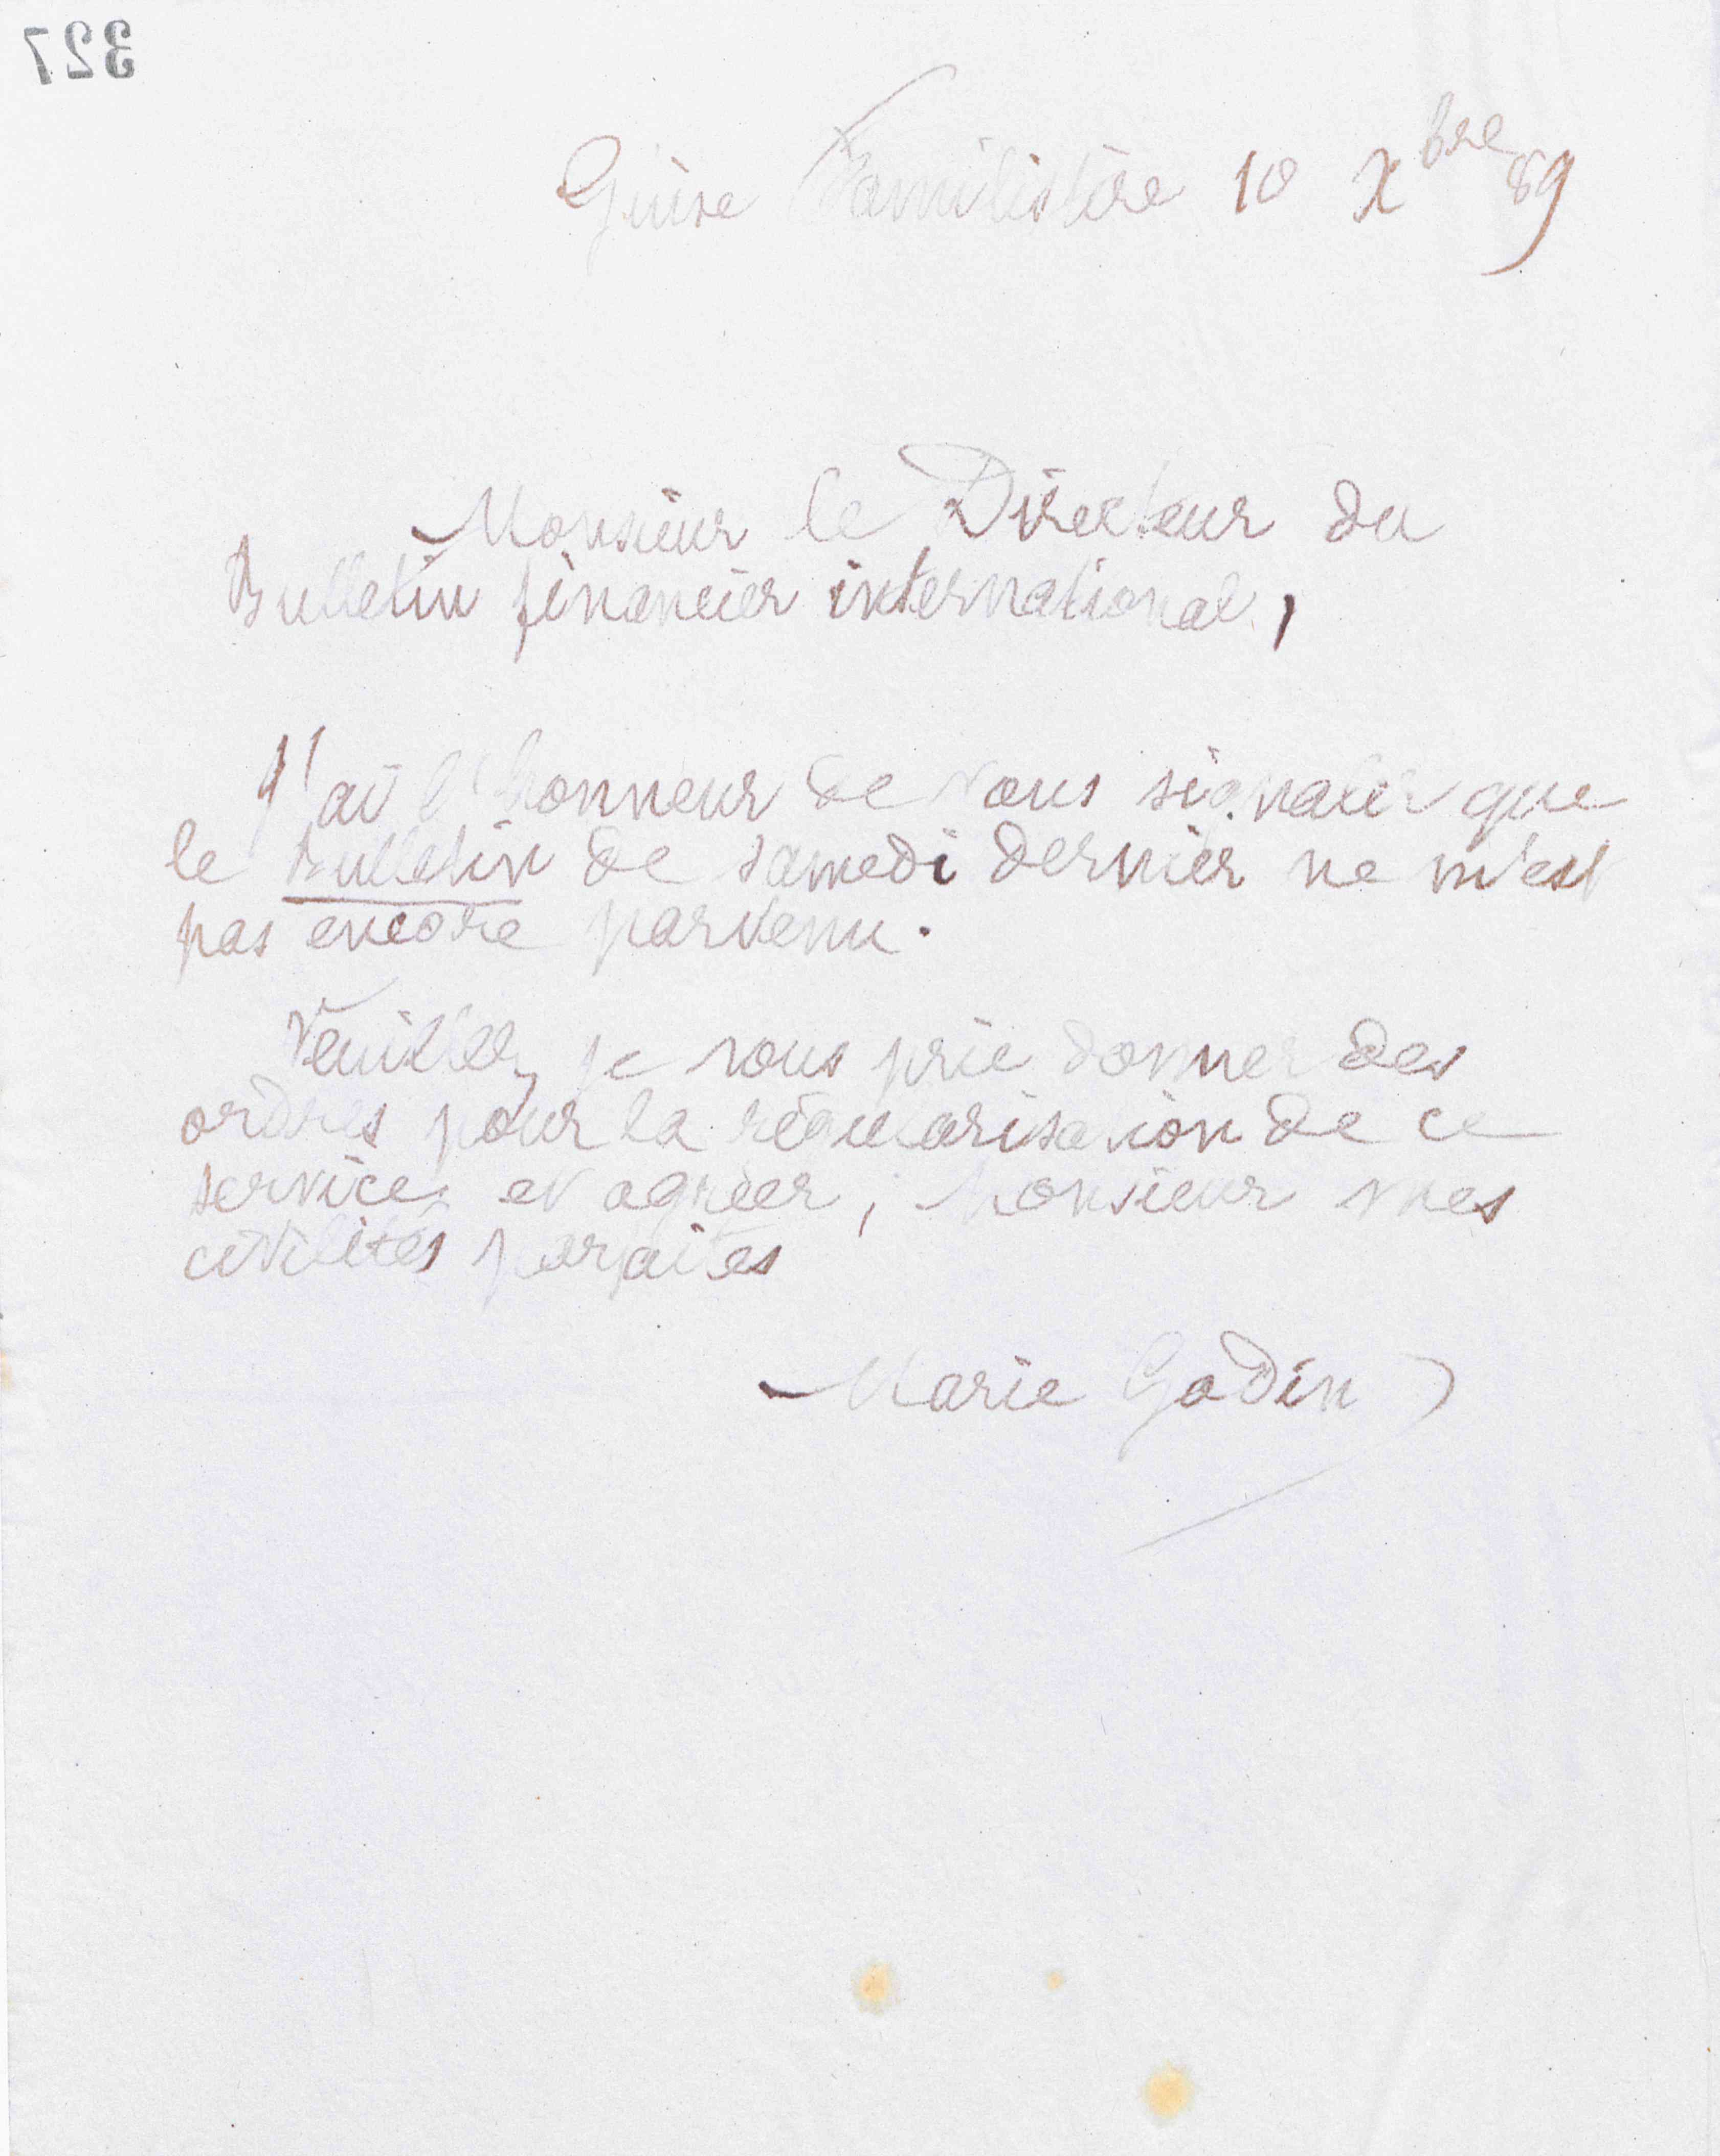 327
Guise Familistère 10 Xbre 89
Monsieur le Directeur du
Bulletin financier international,
J'ai l'honneur de vous signaler que
le Bulletin de samedi dernier ne m'est
pas encore parvenu.
Veuillez, je vous prie donner des
ordres pour la régularisation de ce
service et agréer, Monsieur mes
civilités parfaites
Marie Godin